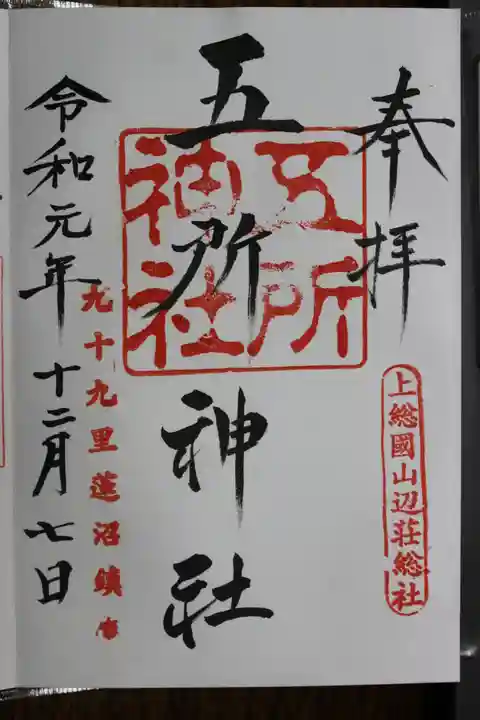 奉拝
上総國山辺荘総社
五所神社
五所神社
九十九里蓮沼鎮
令和元年十二月七日